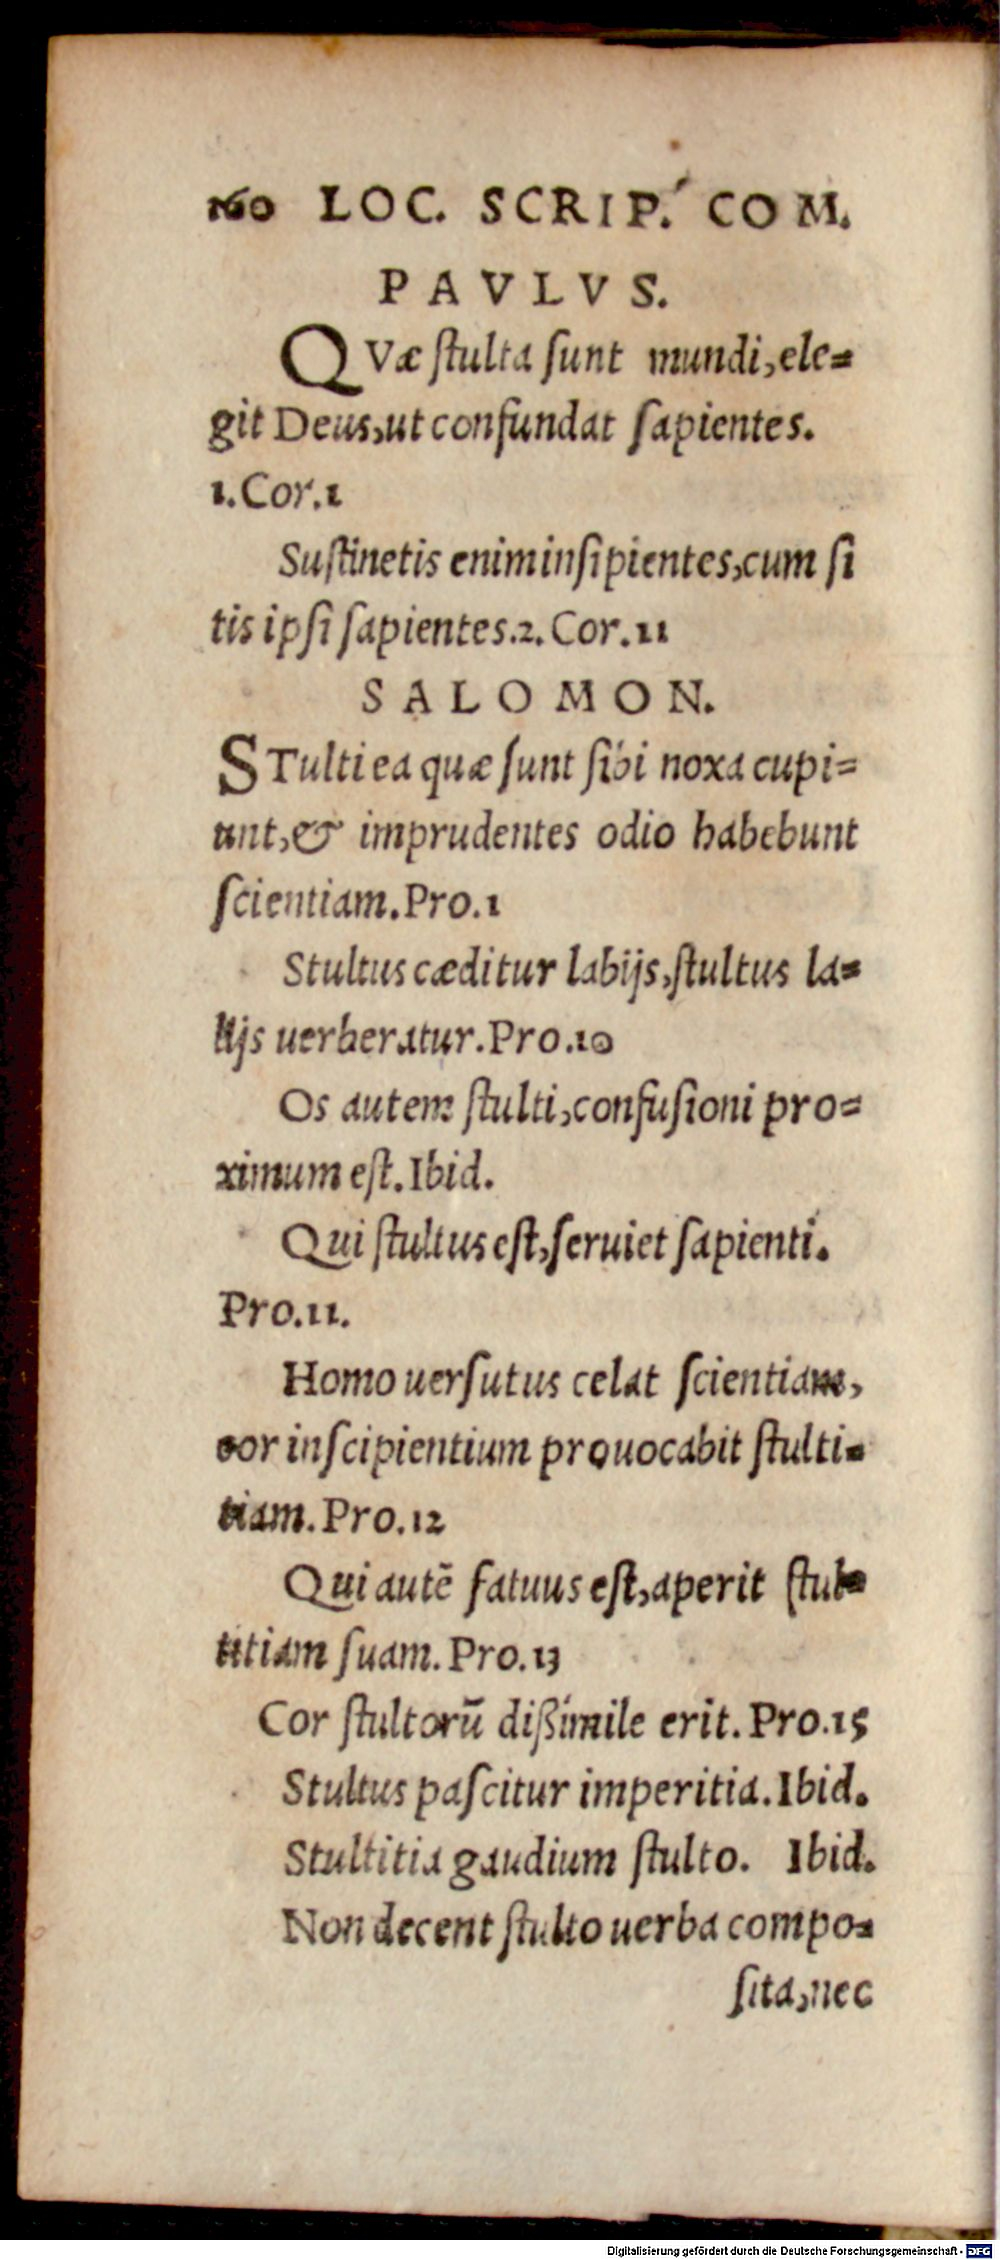 160 LOC. SCRIP. COM.
PAVLVS.
QVæ ſtulta ſunt mundi, ele=
git Deus, ut confundat ſapientes.
1. Cor. 1
Suſtinetis enim inſipientes, cum ſi
tis ipſi ſapientes. 2. Cor. 11
SALOMON.
STulti ea quæ ſunt ſibi noxa cupi=
unt, & imprudentes odio habebunt
ſcientiam. Pro. 1
Stultus cæditur labijs, ſtultus la=
bijs uerberatur. Pro. 10
Os autem ſtulti, confuſioni pro=
ximum eſt. Ibid.
Qui ſtultus eſt, ſeruiet ſapienti.
Pro. 11.
Homo uerſutus celat ſcientiam,
cor inſcipientium prouocabit ſtulti=
tiam. Pro. 12
Qui autē fatuus eſt, aperit ſtul=
titiam ſuam. Pro. 13
Cor ſtultorū dißimile erit. Pro. 15
Stultus paſcitur imperitia. Ibid.
Stultitia gaudium ſtulto. Ibid.
Non decent ſtulto uerba compo=
ſita, nec
Digitalisierung gefördert durch die Deutsche Forschungsgemeinschaft - DFG